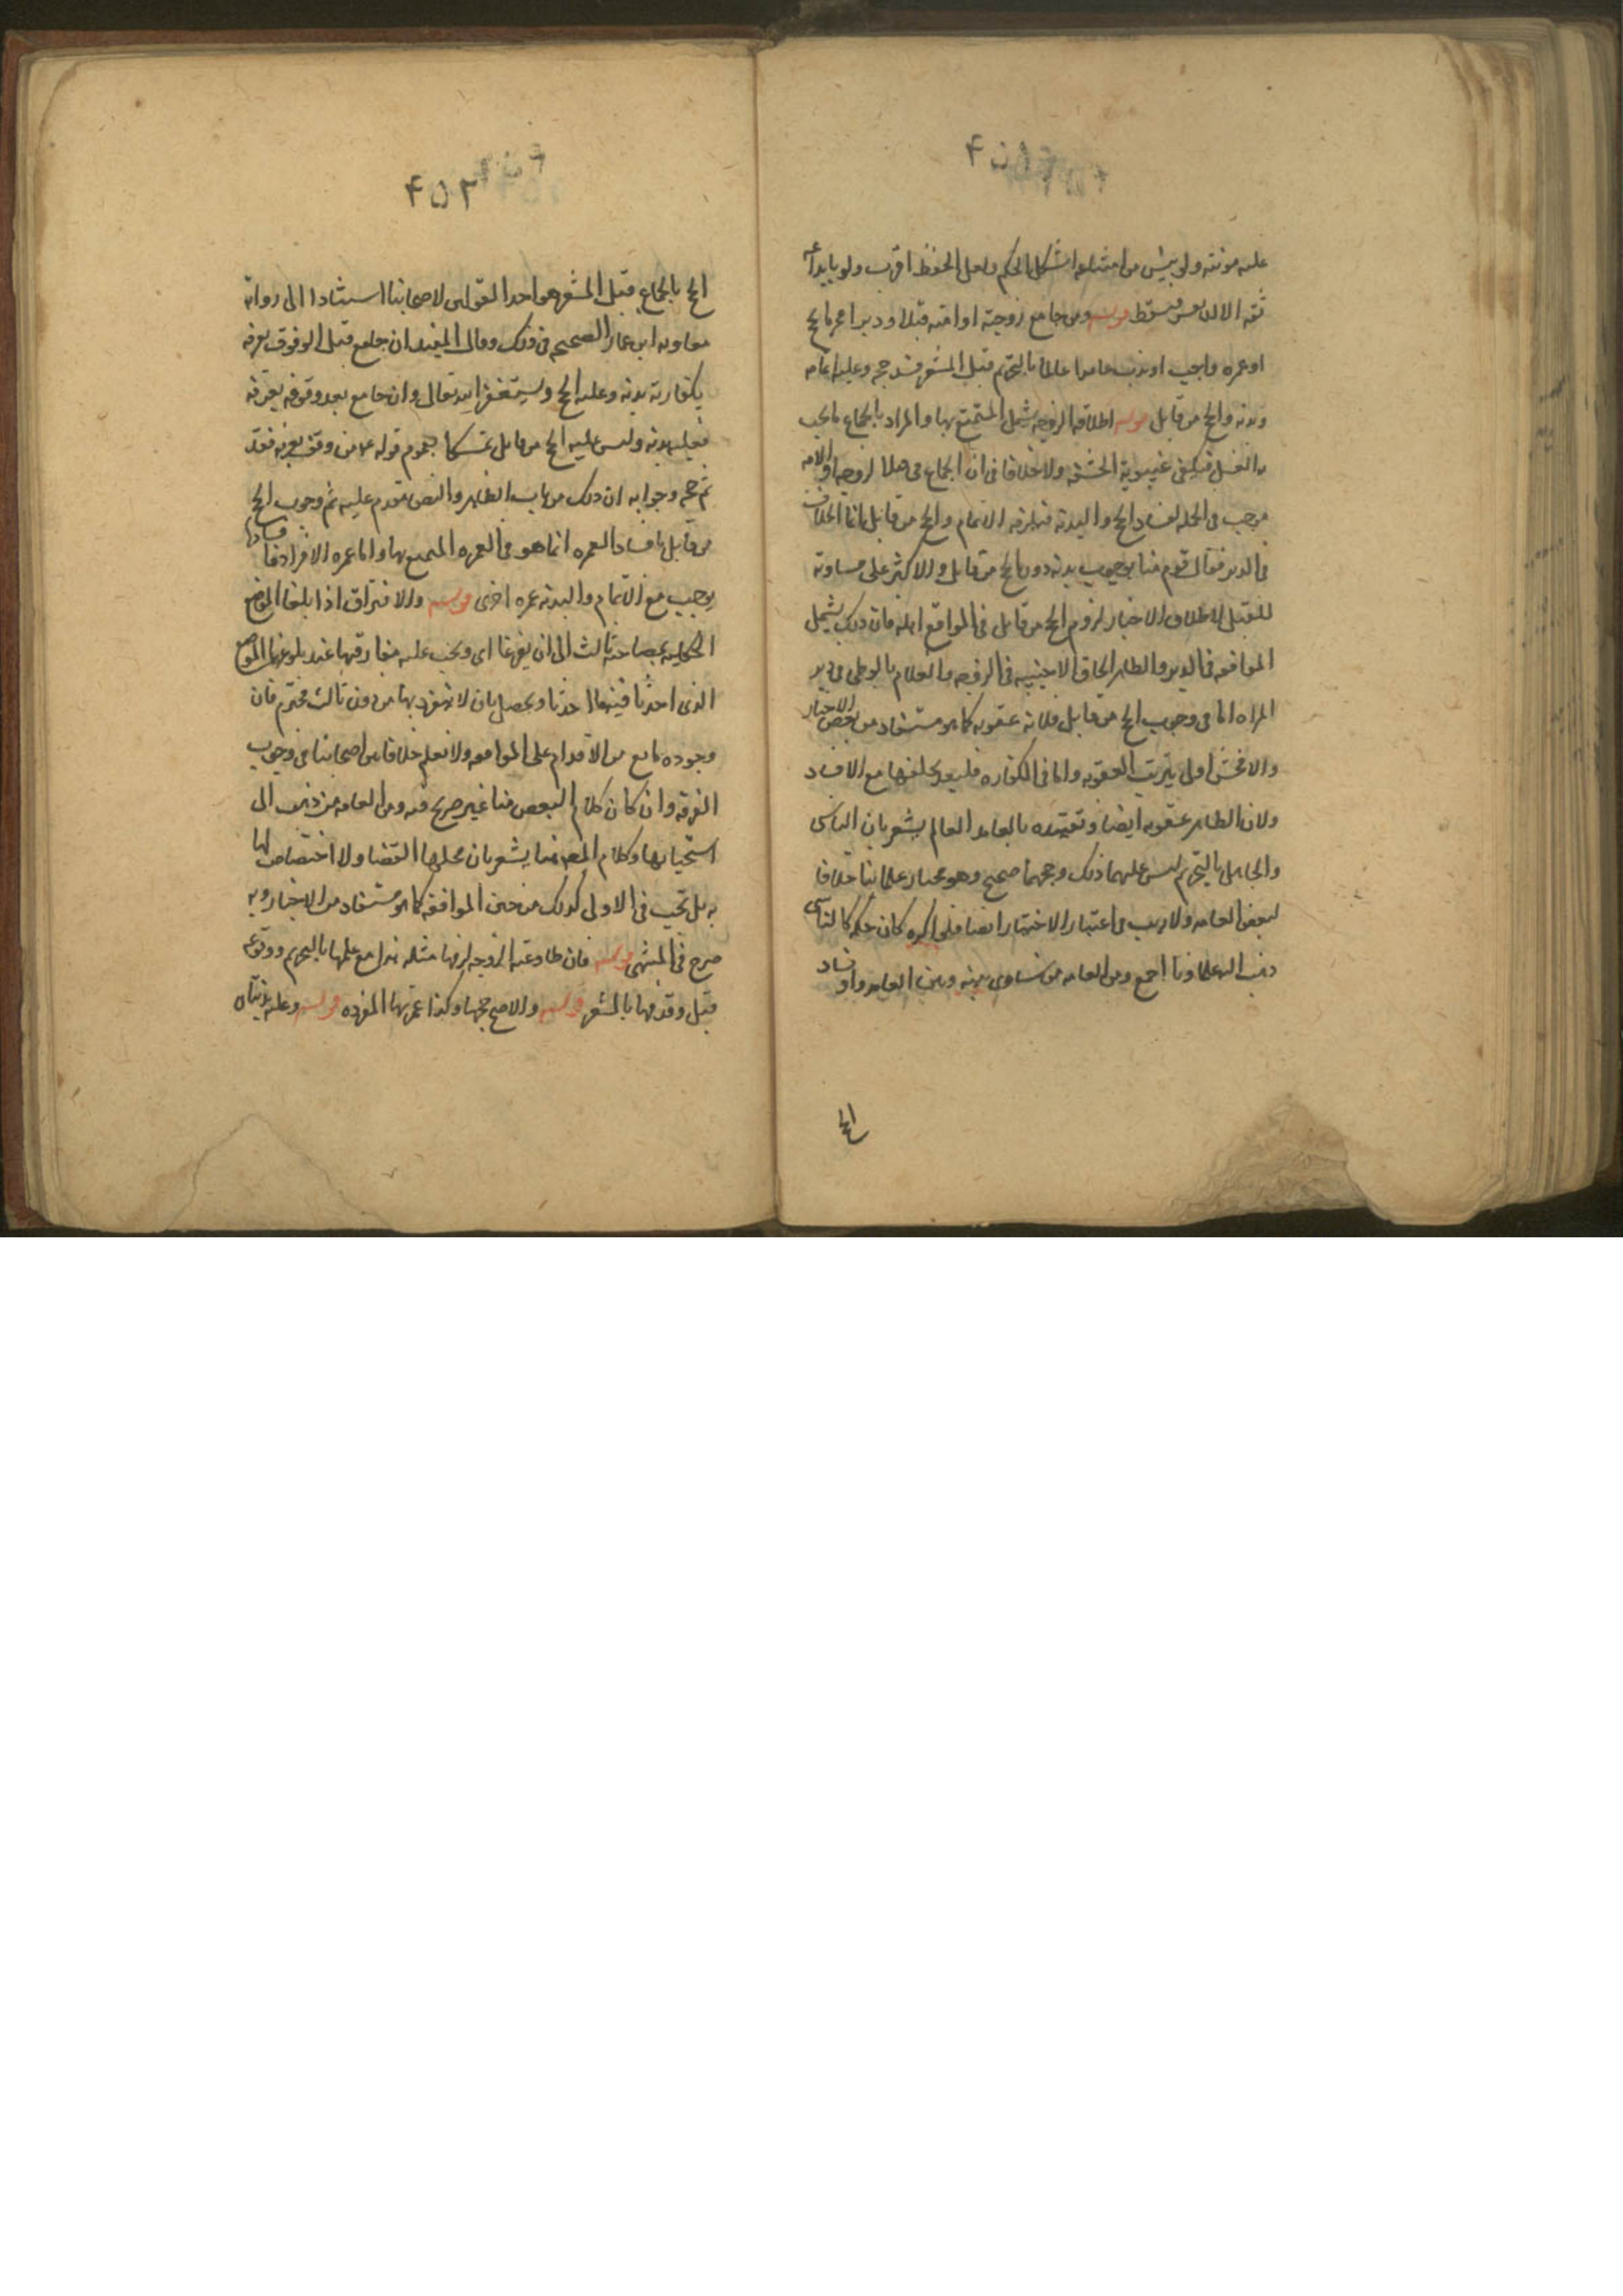 ۴۵۱
علیه مونته ولو یئس من امتثاله اشکل الحکم ولعل الحفظ اقرب ولو باید
ثقه الا لان فسقط قوله ومن جامع زوجته او امته قبلا او دبرا محرما بحج
او عمره واجب او ندب عامدا عالما بالتحریم قبل المشعر فسد حجه وعلیه اتمامه
وبدنه والحج من قابل قوله اطلاقه الزوجه یشمل المتمتع بها والمراد بالجماع ما یجب
به الغسل فیکفی غیبوبة الحشفه ولا خلاف فی ان الجماع فی قبل الزوجه والامه
موجب فی الجمله لفساد الحج والبدنه فیلزمه الاتمام والحج من قابل وانما الخلاف
فی الدبر فقال قوم منا بوجوب بدنه دون الحج من قابل والاکثر علی مساوته
للقبل لاطلاق الاخبار لزوم الحج من قابل فی المواقع اهله فان ذلک یشمل
المواقعه فی الدبر والظاهر الحاق الاجنبیه فی الزوجه والغلام بالوطی فی دبر
المراه اما فی وجوب الحج من قابل فلانه عقوبه کما هو مستفاد من بعض الاخبار
والافحش اولی بترتب العقوبه واما فی الکفاره فلبعد تخلفها مع الافساد
ولان الظاهر عقوبه ایضا وتقییده بالعامد العالم یشعر بان الناسی
والجاهل بالتحریم لیس علیهما ذلک وحجهما صحیح وهو مختار علمائنا خلافا
لبعض العامه ولا ریب فی اعتبار الاختیار ایضا فلو اکره کان حکمه کالناسی
ذهب الیه علماونا اجمع ومن العامه من ساوی بینه وبین العامد وافساد
الحج
۴۵۲
الحج بالجماع قبل المشعر هو احد القولین لاصحابنا استنادا الی روایة
معاویه ابن عمار الصحیح فی ذلک وقال المفید ان جامع قبل الوقوف بعرفه
فکفارته بدنه وعلیه الحج ویستغفر الله تعالی وان جامع بعد وقوفه بعرفه
فعلیه بدنه ولیس علیه الحج من قابل تمسکا بعموم قوله ع من وقف بعرفه فقد
تم حجه وجوابه ان ذلک من باب الظاهر والنص مقدم علیه ثم وجوب الحج
من قابل بافساد العمره انما هو فی العمره المتمتع بها واما عمره الافراد ففسادها
یوجب مع الاتمام والبدنه عمره اخری قوله والافتراق اذا بلغا الموضع
الخطیئه بمصاحبة ثالث الی ان یفرغا ای ویجب علیه مفارقتها عند بلوغهما الموضع
الذی احدثا فیه ما احدثا ویحصل بان لا ینفرد بها من دون ثالث محترم فان
وجوده مانع من الاقدام علی المواقعه ولا نعلم خلافا من اصحابنا فی وجوب
الفرقه وان کان کلام البعض منا غیر صریح فیه ومن العامه من ذهب الی
استحبابها وکلام المص هنا یشعر بان محلها القضا ولا اختصاص لها
به بل تجب فی الاولی کذلک من حین المواقعه کما هو مستفاد من الاخبار وبه
صرح فی المنتهی قوله فان طاوعته الزوجه لزمها مثله هذا مع علمها بالتحریم ووقوعه
قبل وقوفها بالمشعر قوله والاصح حجها وکذا عمرتها المفرده قوله وعلیه بدنتان